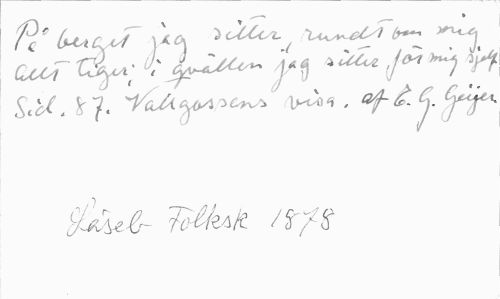 På berget jag sitter, rundt om mig
allt tiger; i qvällen jag sitter för mig sjelf
Sid. 87. Vallgossens visa. af E. G. Geijer.
Läseb Folksk 1878